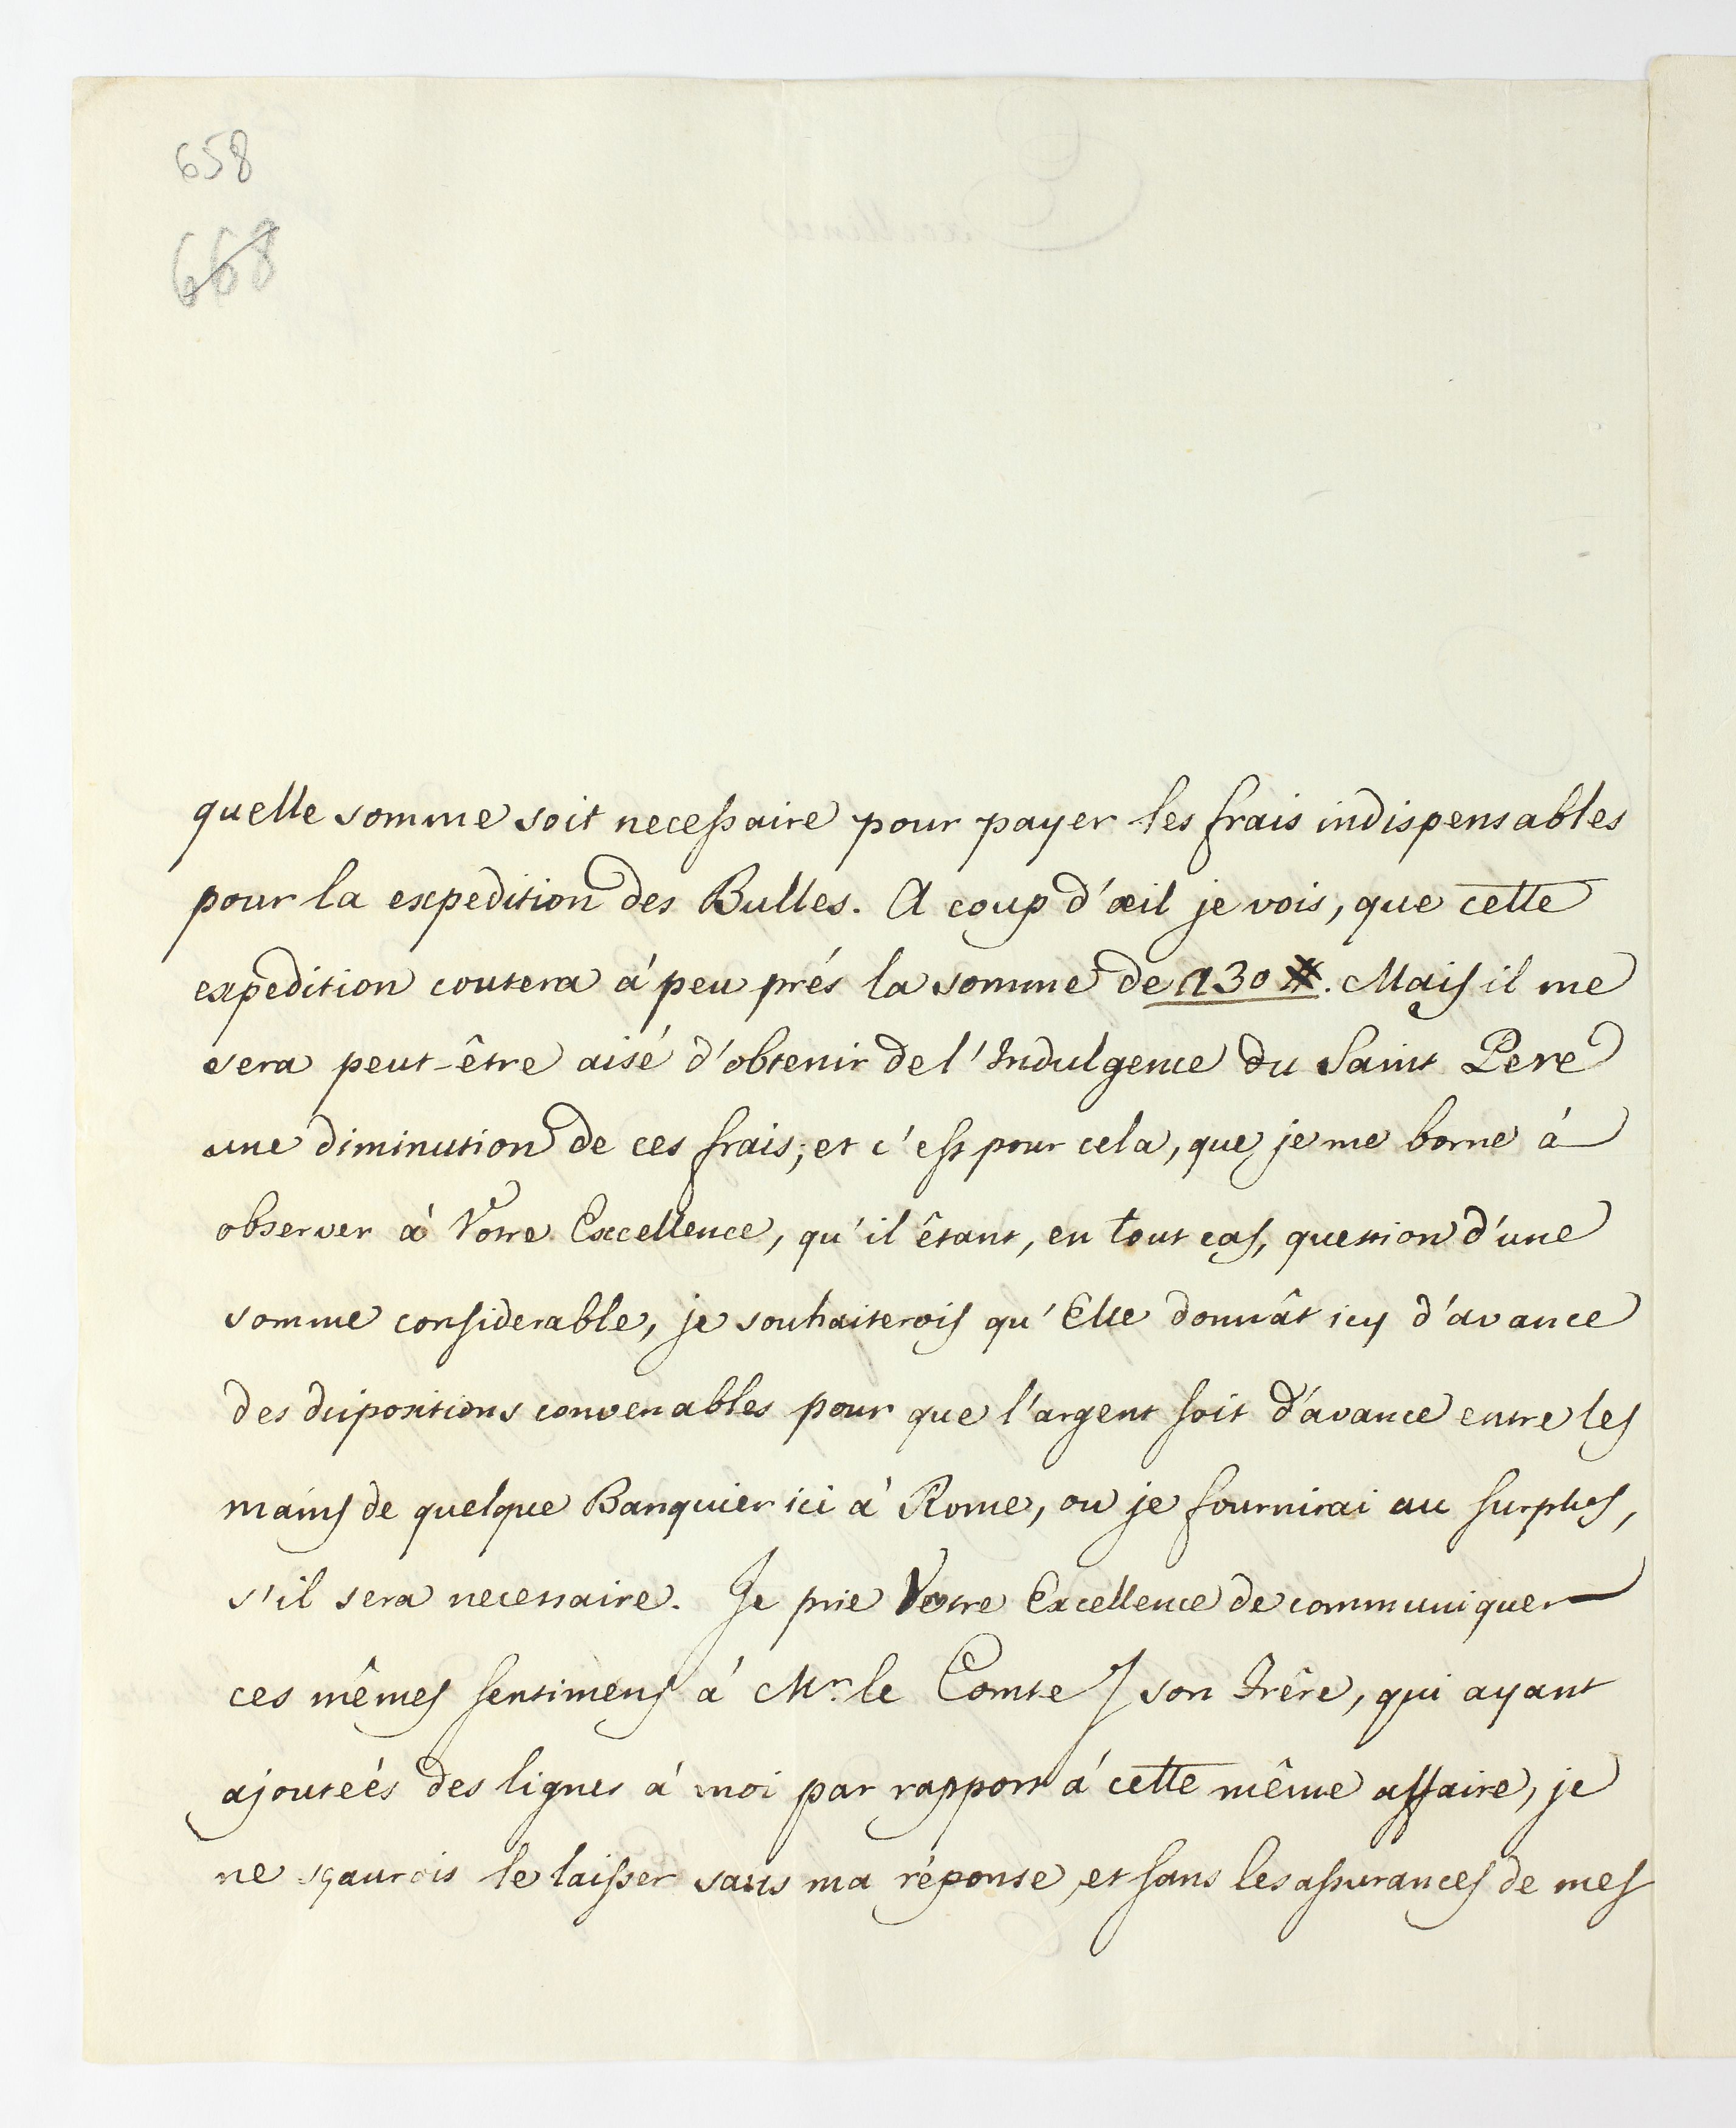 658
668
quelle somme soit necessaire pour payer les frais indispensables
pour la expedition des Bulles. A coup d'œil je vois, que cette
expedition coutera à peu prés la somme de 130 #. Mais il me
sera peut-être aisé d'obtenir de l'Indulgence du Saint Pere
une diminution de ces frais; et c'est pour cela, que je me borne à
observer à Votre Excellence, qu'il êtant, en tout cas, question d'une
somme considerable, je souhaiterois qu'Elle donnât icy d'avance
des dispositions convenables pour que l'argent soit d'avance entre les
mains de quelque Banquier ici à Rome, ou je fournirai au surplus,
s'il sera necessaire. Je prie Votre Excellence de communiquer
ces mêmes sentimens à Mr. le Comte son Frêre, qui ayant
ajouteés des lignes à moi par rapport à cette même affaire, je
ne sçaurois le laisser sans ma réponse, et sans les assurances de mes